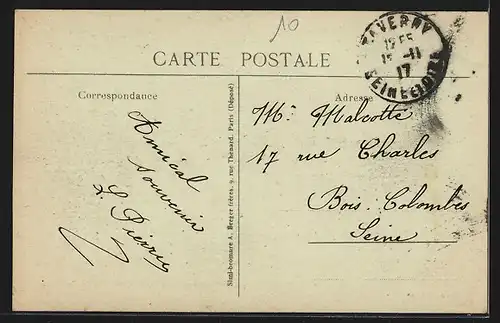 10
CARTE POSTALE
TAVERNY
12 55
15 -11
17
SEINE ET OISE
Correspondance
Adresse
Amical
souvenir
L. Pierre
Simi-bromure A. Breger frères, 9, rue Thénard, Paris (Déposé)
Mr. Malcotte
17 rue Charles
Bois-Colombes
Seine